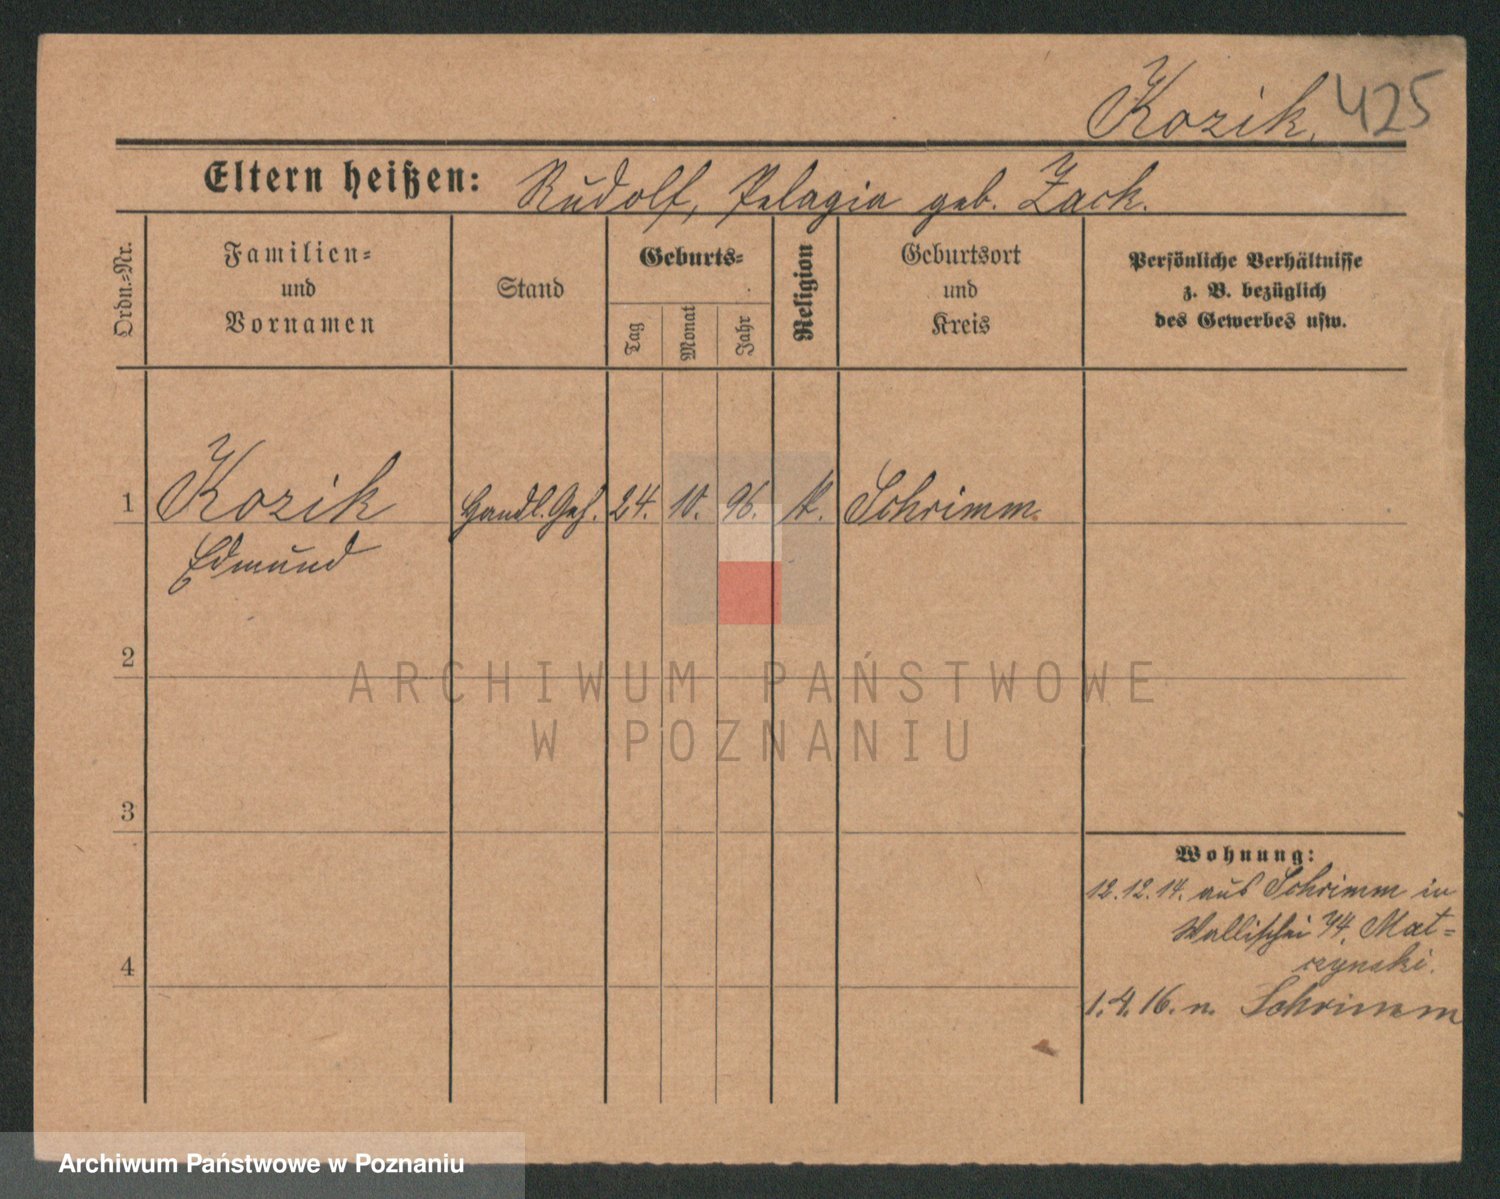 Kozik. 425
Eltern heißen: Rudolf, Pelagia geb. Zack.
Ordn.-Nr.
Familien-
und
Vornamen
Stand
Geburts-
Tag
Monat
Jahr
Religion
Geburtsort
und
Kreis
Persönliche Verhältnisse
z. B. bezüglich
des Gewerbes usw.
1 Kozik Handl. Geh. 24. 10. 96. k. Schrimm.
Edmund
2
3
4
Wohnung:
12.12.14. aus Schrimm in
Wallischei 74. Mat-
czynski.
1.4.16. n. Schrimm
ARCHIWUM PAŃSTWOWE
W POZNANIU
Archiwum Państwowe w Poznaniu